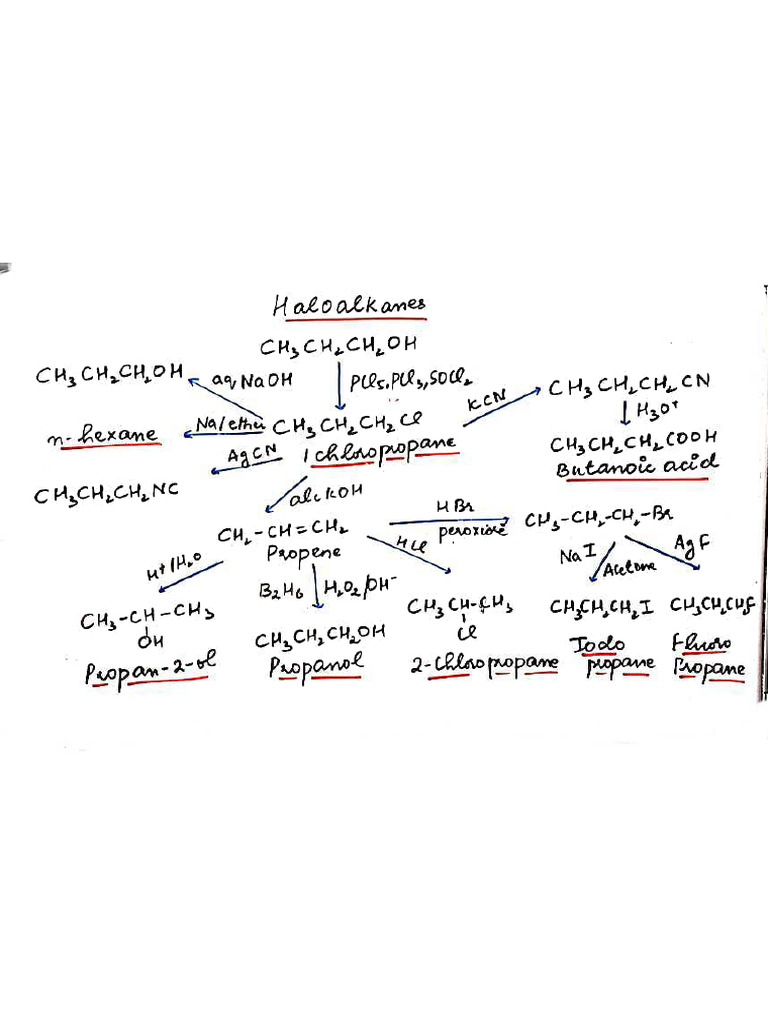 Haloalkanes
CH3CH2CH2OH
CH3CH2CH2OH
aq NaOH
PCl5, PCl3, SOCl2
KCN
CH3CH2CH2CN
H3O+
n-hexane
Na/ether
CH3CH2CH2Cl
1 chloropropane
CH3CH2CH2COOH
Butanoic acid
AgCN
CH3CH2CH2NC
alc KOH
CH2-CH=CH2
Propene
HBr
peroxide
CH3-CH2-CH2-Br
HCl
NaI
Acetone
AgF
H+/H2O
B2H6
H2O2/OH-
CH3-CH-CH3
OH
Propan-2-ol
CH3CH2CH2OH
Propanol
CH3CH-CH3
Cl
2-chloropropane
CH3CH2CH2I
Iodo
propane
CH3CH2CH2F
Fluoro
Propane